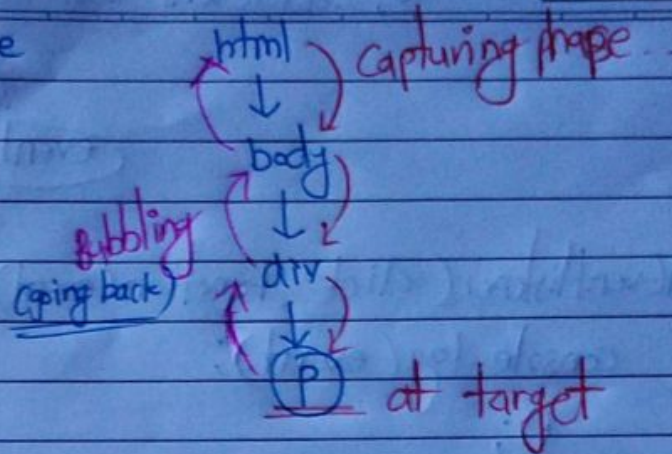 e html Capturing phase
body
Bubbling
(going back) div
P at target